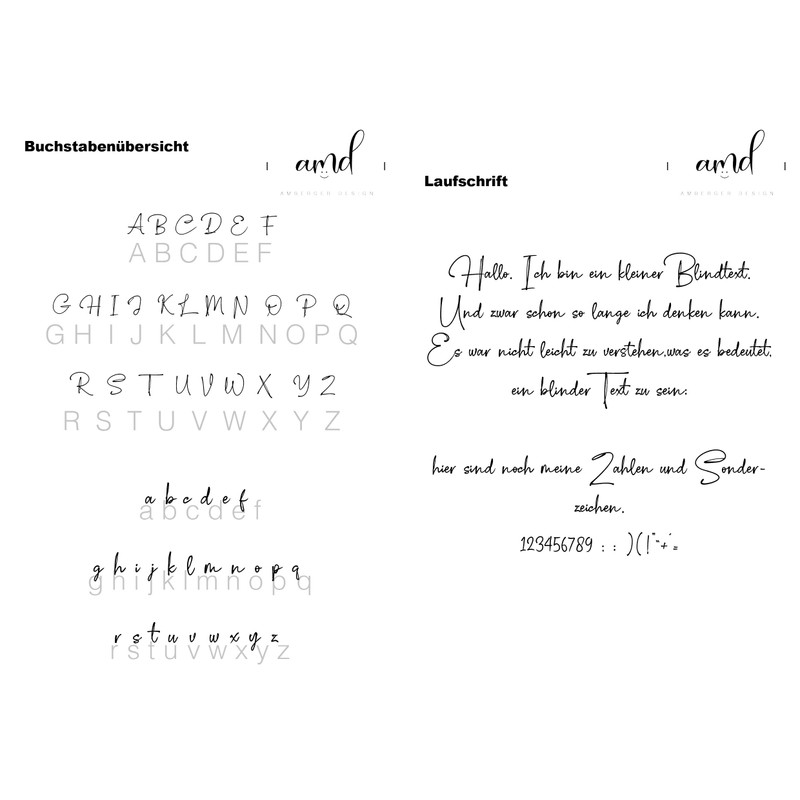 Buchstabenübersicht
amd
AMBERGER DESIGN
A B C D E F
A B C D E F
G H I J K L M N O P Q
G H I J K L M N O P Q
R S T U V W X Y Z
R S T U V W X Y Z
a b c d e f
a b c d e f
g h i j k l m n o p q
g h i j k l m n o p q
r s t u v w x y z
r s t u v w x y z
Laufschrift
amd
AMBERGER DESIGN
Hallo. Ich bin ein kleiner Blindtext.
Und zwar schon so lange ich denken kann.
Es war nicht leicht zu verstehen,was es bedeutet,
ein blinder Text zu sein:
hier sind noch meine Zahlen und Sonder-
zeichen.
123456789 : : )(!"-+´=